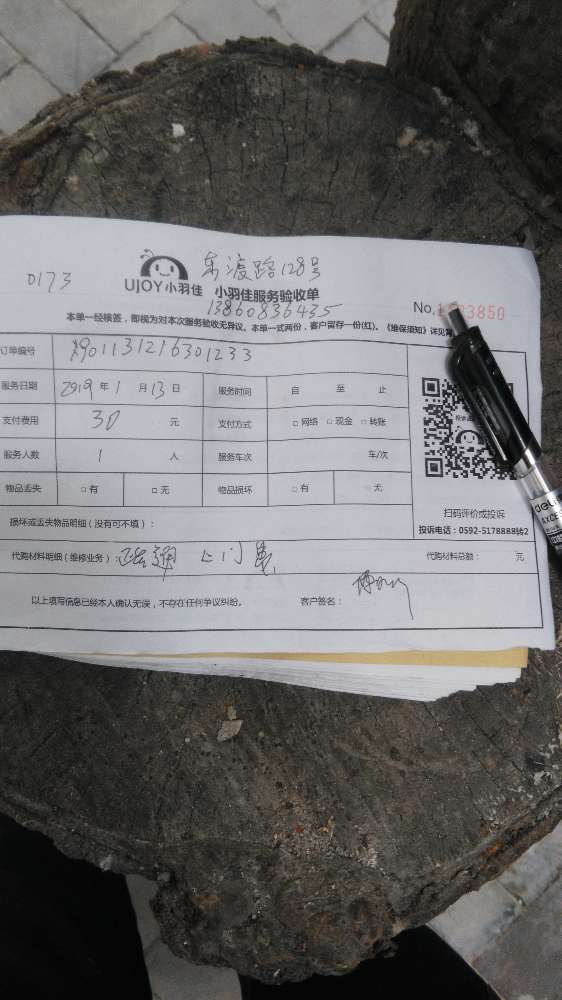 东渡路128号
0173
UJOY小羽佳 小羽佳服务验收单
13860836435
No. 3850
本单一经核签，即视为对本次服务验收无异议。本单一式两份，客户留存一份(红)。《维保须知》详见
订单编号 X901131216301233
服务日期 2019 年 1 月 13 日 服务时间 自 至 止
支付费用 30 元 支付方式 □ 网络 □ 现金 □ 转账
服务人数 1 人 服务车次 车/次
物品丢失 □ 有 □ 无 物品损坏 □ 有 □ 无
扫码评价或投诉
损坏或丢失物品明细（没有可不填）：
投诉电话：0592-5178888转2
代购材料明细（维修业务）： 疏通 上门费 代购材料总额： 元
以上填写信息已经本人确认无误，不存在任何争议纠纷。 客户签名：
deli